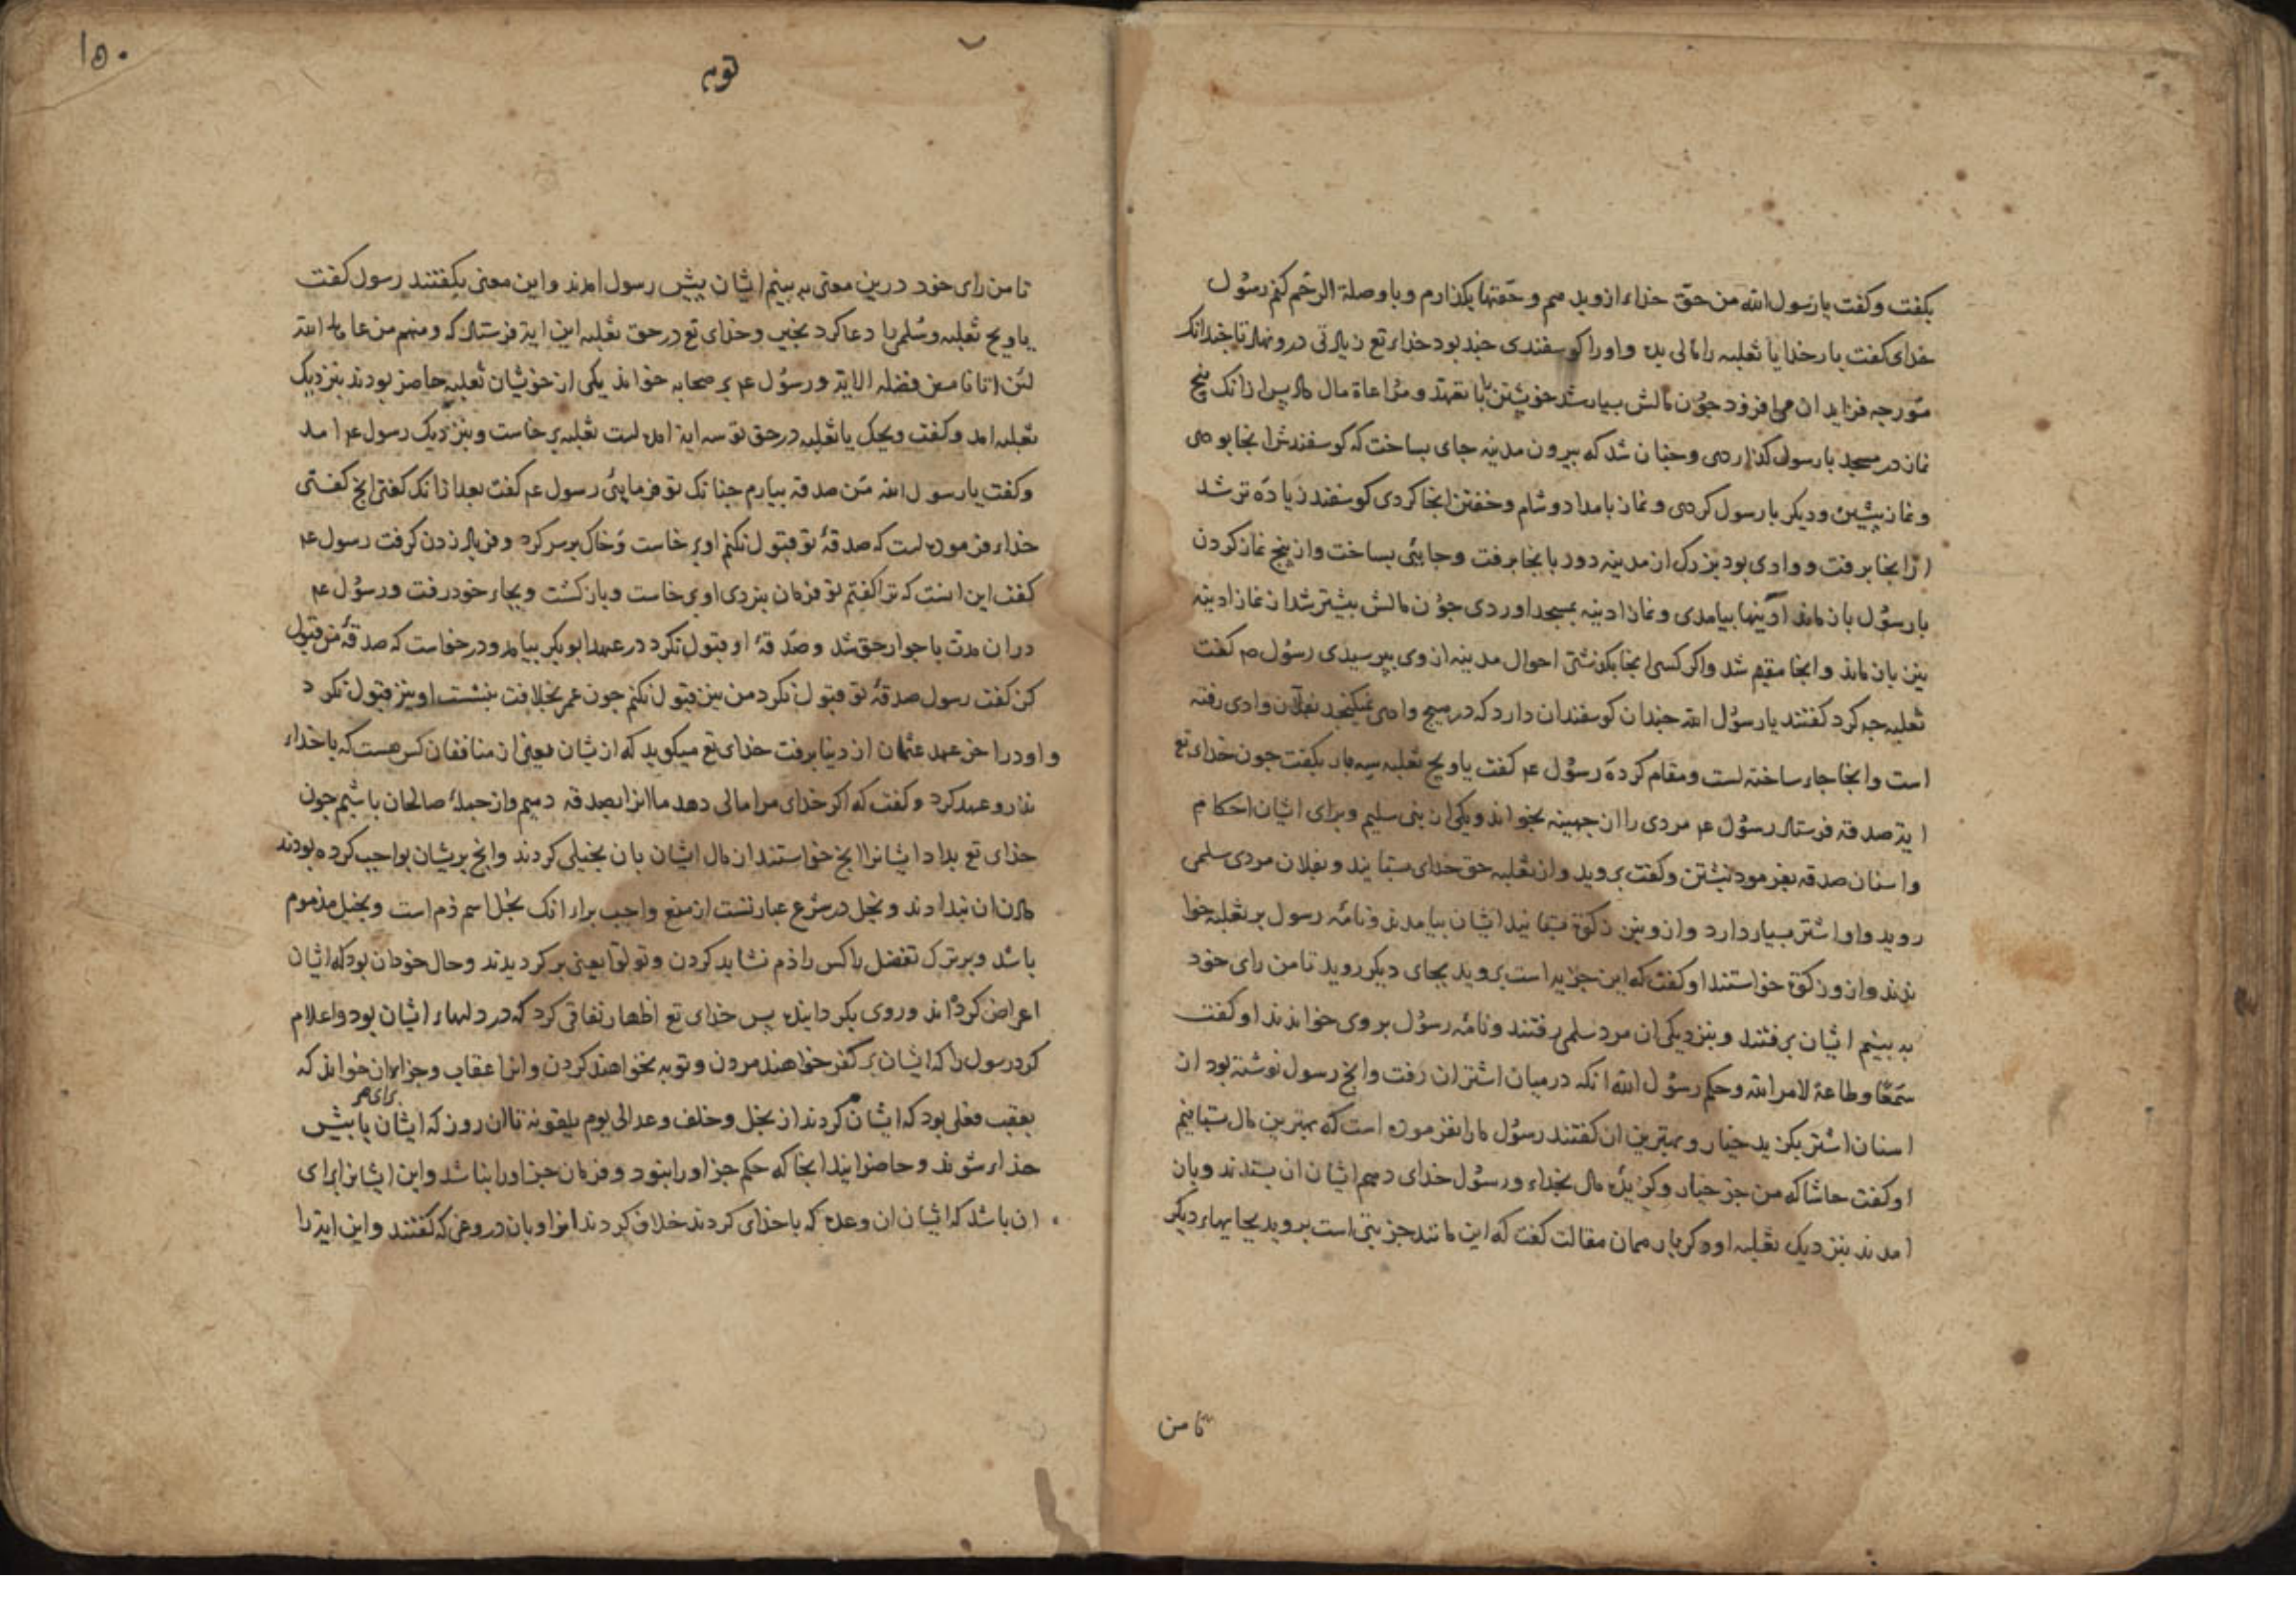 بکفت وکفت یا رسول الله من حق خدا ازو بدهم وحقها بکذارم وباو صلة الرحم کنم رسول
خدای کفت بار خدایا ثعلبه را مالی بده واورا کوسفندی جند بود خداء تع زیادتی درو نهاد تا جندانک
مور جه فزاید ان می افزود جون مالش بسیار شد خویشتن با تعهد ومراعاة مال داد پس ازانک پنج
نماز در مسجد با رسول کذاردی وجنان شد که بیرون مدینه جای بساخت که کوسفندش انجا بودی
ونماز پیشین ودیکر با رسول کردی ونماز بامداد وشام وخفتن انجا کردی کوسفند زیاده تر شد
از انجا برفت ووادی بود بزرک از مدینه دور بانجا برفت وجایی بساخت واز پنج نماز کردن
با رسول باز ماند آدینها بیامدی ونماز ادینه بمسجد اوردی جون مالش بیشتر شد از نماز ادینه
نیز باز ماند وانجا مقیم شد واکر کسی انجا بکذشتی احوال مدینه از وی بپرسیدی رسول ص کفت
ثعلبه جه کرد کفتند یا رسول الله جندان کوسفندان دارد که در هیج وادی نمیکنجد بفلان وادی رفته
است وانجا جاء ساخته است ومقام کرده رسول عم کفت یا ویح ثعلبه سه بار بکفت جون خدای تع
ایة صدقه فرستاد رسول عم مردی را از جهینه بخواند ویکی از بنی سلیم وبرای ایشان احکام
واسنان صدقه بفرمود نبشتن وکفت بروید واز ثعلبه حق خدای بستانید وبفلان مردی سلمی
روید واو اشتر بسیار دارد وازو نیز زکوة بستانید ایشان بیامدند ونامه رسول بر ثعلبه خوا
ندند وازو زکوة خواستند او کفت که این جزیه است بروید بجای دیکر روید تا من رای خود
به بینم ایشان برفتند وبنزدیکی ان مرد سلمی رفتند ونامه رسول بروی خواندند او کفت
سمعا وطاعة لامر الله وحکم رسول الله انکه در میان اشتران رفت وانج رسول نوشته بود از
اسنان اشتر بکزید خیار وبهترین ان کفتند رسول مارا نفرموده است که بهترین مال بستانیم
او کفت حاشا که من جز خیار وکزیده مال بخداء ورسول خدای دهم ایشان ان بستدند وباز
امدند بنزدیک ثعلبه او دکر بار همان مقالت کفت که این مانند جزیتی است بروید بجایهاء دیکر
تا من
توبه
۱۵۰
تا من رای خود درین معنی به بینم ایشان پیش رسول امدند واین معنی بکفتند رسول کفت
یا ویح ثعلبه وسلمی را دعا کرد بخیر وخدای تع در حق ثعلبه این ایة فرستاد که ومنهم من عاهد الله
لئن اتانا من فضله الایة ورسول عم بر صحابه خواند یکی از خویشان ثعلبه حاضر بودند بنزدیک
ثعلبه امد وکفت ویحک یا ثعلبه در حق تو سه ایة امده است ثعلبه برخاست وبنزدیک رسول عم امد
وکفت یا رسول الله من صدقه بیارم جنانک تو فرمایئی رسول عم کفت بعد ازانک کفتی انج کفتی
خداء فرموده است که صدقۀ تو قبول نکنم او برخاست وخاک بر سر کرد وفریاد زدن کرفت رسول عم
کفت این انست که ترا کفتم تو فرمان نبردی او برخاست وباز کشت وبجاء خود رفت ورسول عم
دران مدت با جوار حق شد وصدقۀ او قبول نکرد در عهد ابو بکر بیامد ودر خواست که صدقۀ من قبول
کن کفت رسول صدقۀ تو قبول نکرد من نیز قبول نکنم جون عمر بخلافت بنشست او نیز قبول نکرد
واو در اخر عهد عثمان از دنیا برفت خدای تع میکوید که از یشان یعنی از منافقان کس هست که با خداء
نذر وعهد کرد وکفت که اکر خدای مرا مالی دهد ما انرا بصدقه دهیم واز جملۀ صالحان باشیم جون
خدای تع بداد ایشانرا انج خواستند از مال ایشان بان بخیلی کردند وانج بریشان بواجب کرده بودند
دادن ان ندادند وبخل در شرع عبارتست از منع واجب براء انک بخل اسم ذم است وبخیل مذموم
باشد وبر ترک تفضل با کس را ذم نشاید کردن وتولوا یعنی برکردیدند وحال خود ان بود که ایشان
اعراض کرده اند وروی بکردانیده پس خدای تع اظهار نفاقی کرد که در دلهاء ایشان بود واعلام
کرد رسول را که ایشان بر کفر خواهند مردن وتوبه نخواهند کردن وانرا عقاب وجزاء ان خواند که
برای هر
بعقب فعلی بود که ایشان کردند از بخل وخلف وعد الی یوم یلقونه تا ان روز که ایشان با پیش
خداء شوند وحاضر ایند انجا که حکم جز اورا نبود وفرمان جز اورا نباشد واین ایشانرا برای
ان باشد که ایشان ان وعده که با خدای کردند خلاف کردند انرا وبان دروغی که کفتند واین ایة را